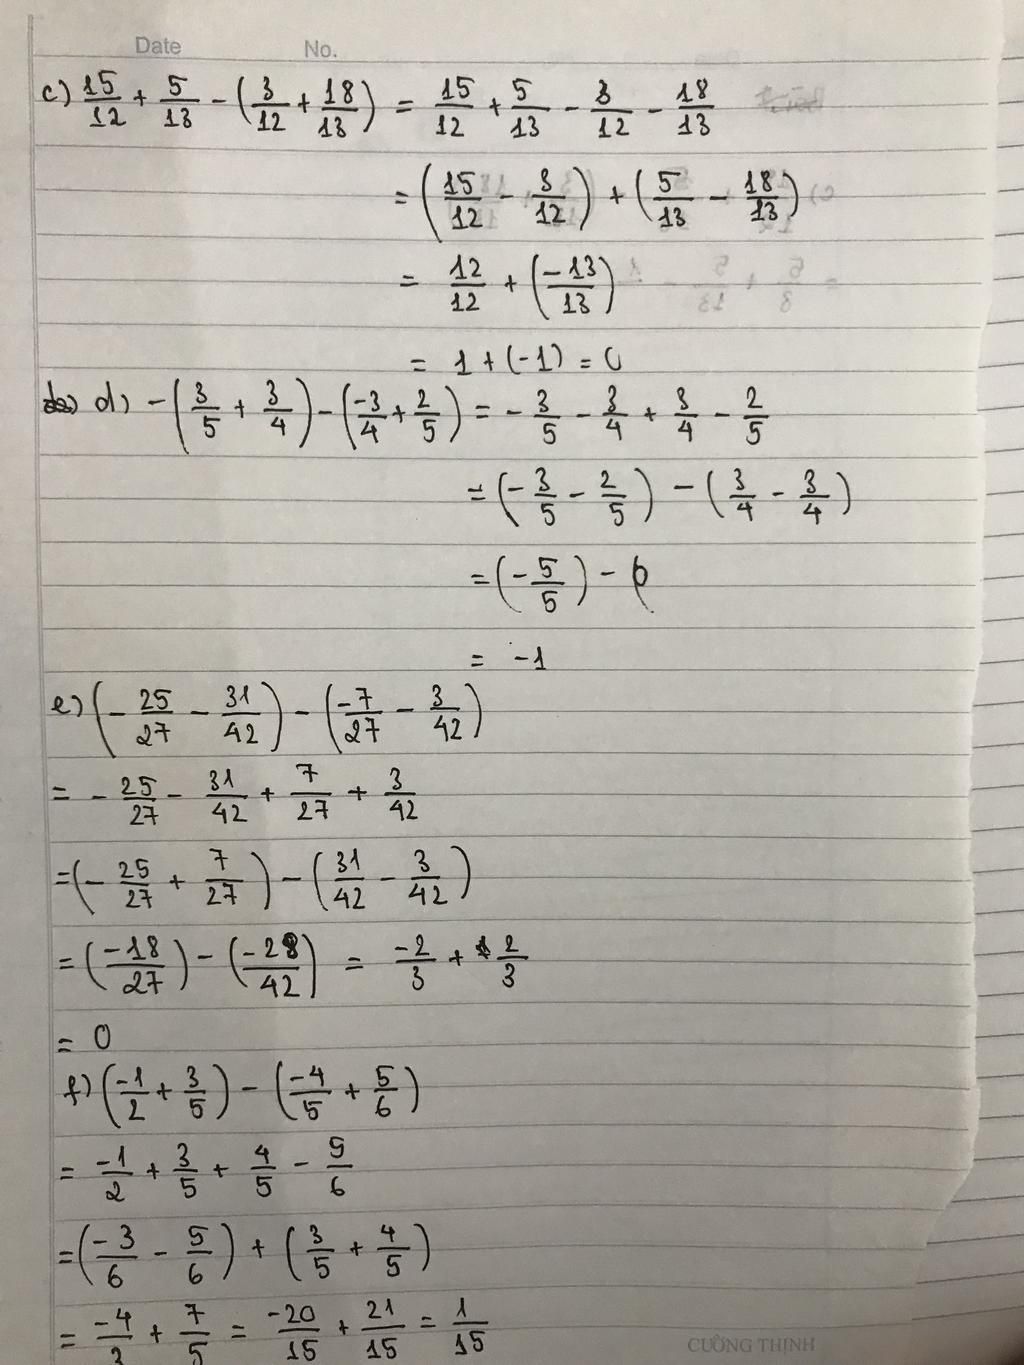 Date No.
c) 15/12 + 5/13 - (3/12 + 18/13) = 15/12 + 5/13 - 3/12 - 18/13
= (15/12 - 3/12) + (5/13 - 18/13)
= 12/12 + (-13/13)
= 1 + (-1) = 0
d) -(3/5 + 3/4) - (-3/4 + 2/5) = -3/5 - 3/4 + 3/4 - 2/5
= (-3/5 - 2/5) - (3/4 - 3/4)
= (-5/5) - 0
= -1
e) (-25/27 - 31/42) - (-7/27 - 3/42)
= -25/27 - 31/42 + 7/27 + 3/42
= (-25/27 + 7/27) - (31/42 - 3/42)
= (-18/27) - (-28/42) = -2/3 + 2/3
= 0
f) (-1/2 + 3/5) - (-4/5 + 5/6)
= -1/2 + 3/5 + 4/5 - 5/6
= (-3/6 - 5/6) + (3/5 + 4/5)
= -4/3 + 7/5 = -20/15 + 21/15 = 1/15
CƯỜNG THỊNH